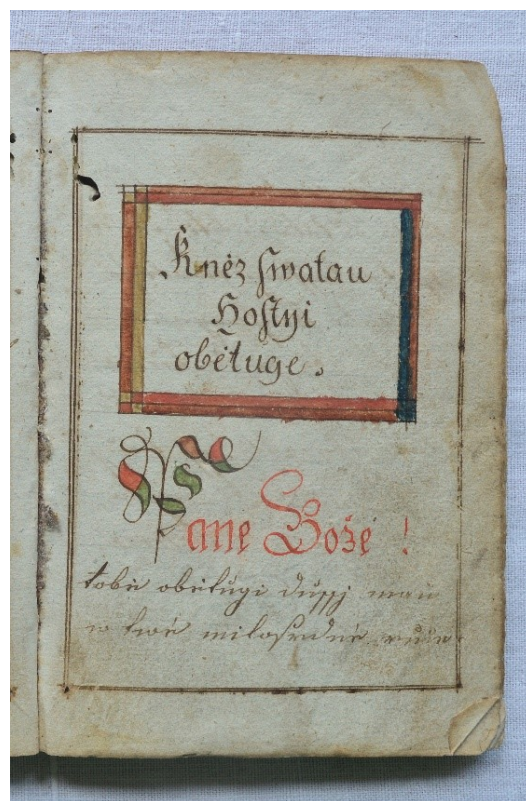 Kněz swatau
Hostyi
obětuge.
Pane Bože!
tobě obětugi dussj mau
w twé milosrdné ruce.